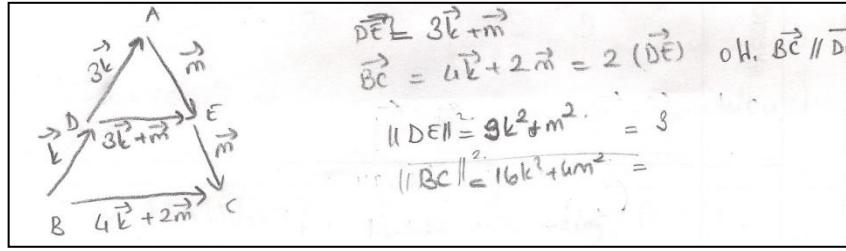 A
3k⃗
m⃗
D
E
3k⃗+m⃗
k⃗
m⃗
B
4k⃗+2m⃗
C
DE⃗ = 3k⃗+m⃗
BC⃗ = 4k⃗+2m⃗ = 2 (DE⃗) BC⃗ // D
||DE||² = 9k²+m² = 9
||BC||² = 16k²+4m² =